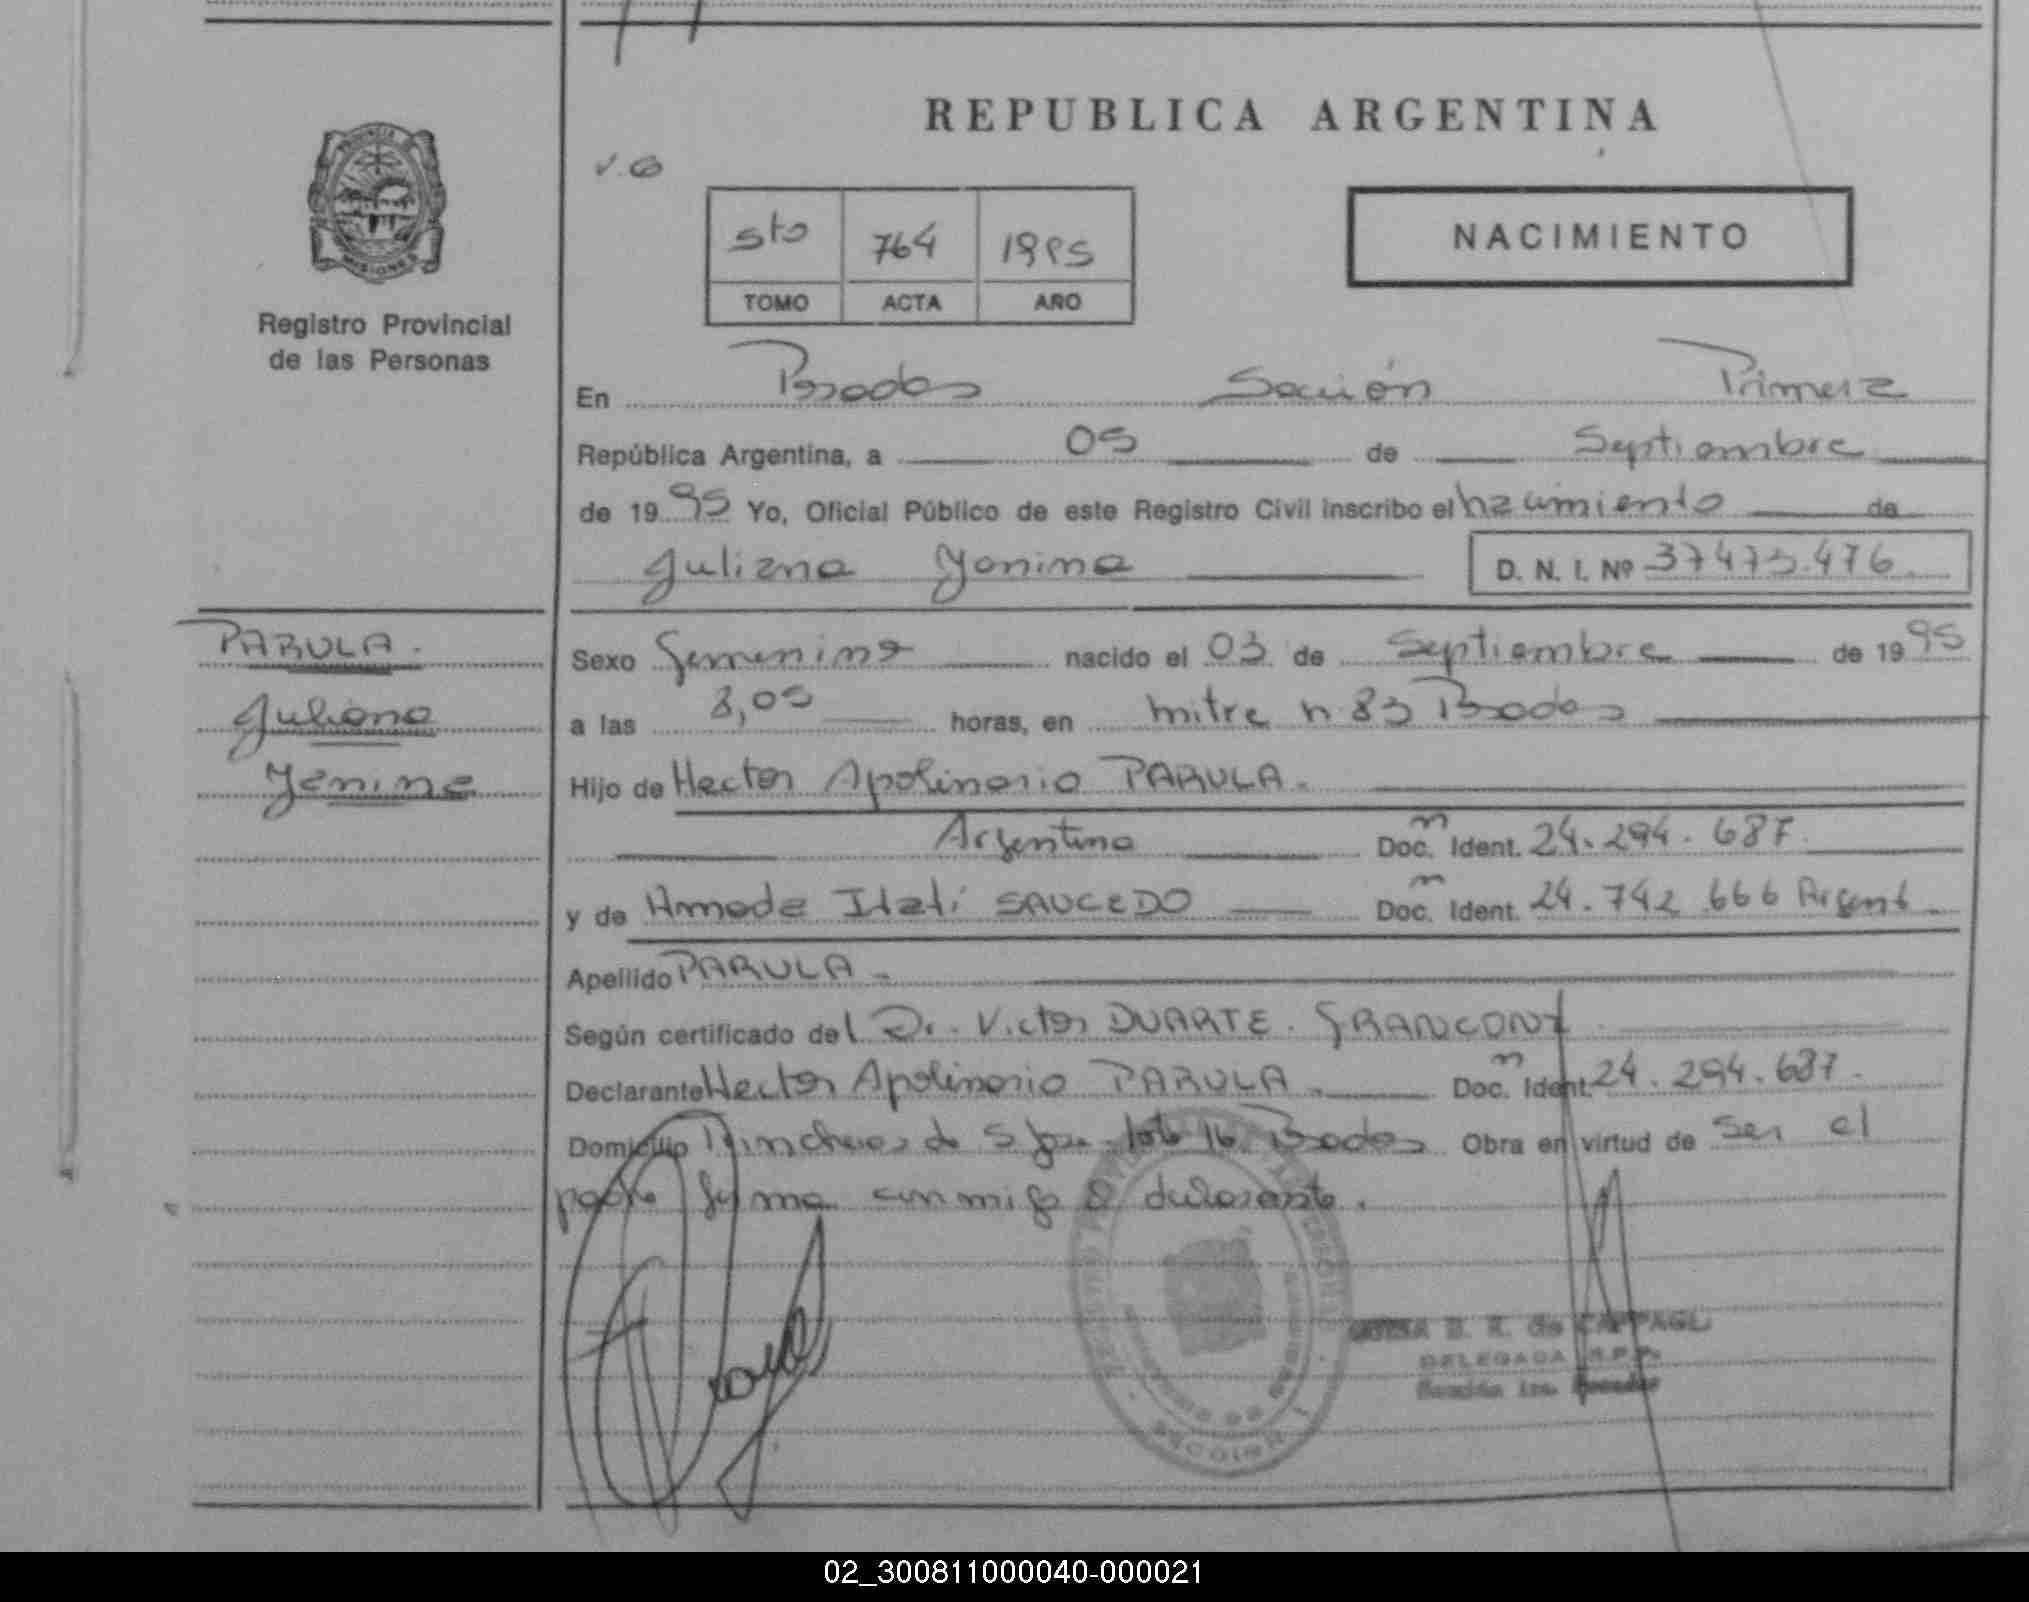 REPUBLICA ARGENTINA
PROVINCIA
MISIONES
Registro Provincial
de las Personas
v. 6
5to 764 1995
TOMO ACTA AÑO
NACIMIENTO
En Posadas Sección Primera
República Argentina, a 05 de Septiembre
de 1995 Yo, Oficial Público de este Registro Civil inscribo el nacimiento de
Juliana Yanina D. N. I. Nº 37473.476
PARULA.
Juliana
Yanina
Sexo femenino nacido el 03 de Septiembre de 1995
a las 8,05 horas, en mitre n 83 Posadas
Hijo de Hector Apolinario PARULA.
Argentino Doc. m Ident. 24.294.687.
y de Amada Itati SAUCEDO Doc. m Ident. 24.742.666 Argent
Apellido PARULA
Según certificado del Dr. Victor DUARTE. FRANCONY
Declarante Hector Apolinario PARULA. Doc. m Ident. 24.294.687.
Domicilio de S. Jose lote 16 Posadas Obra en virtud de Ser el
padre firma conmigo el declarante.
B. R. de CAPPAGLI
DELEGADA R.P.P.
Sección 1ra. Posadas
02_300811000040-000021